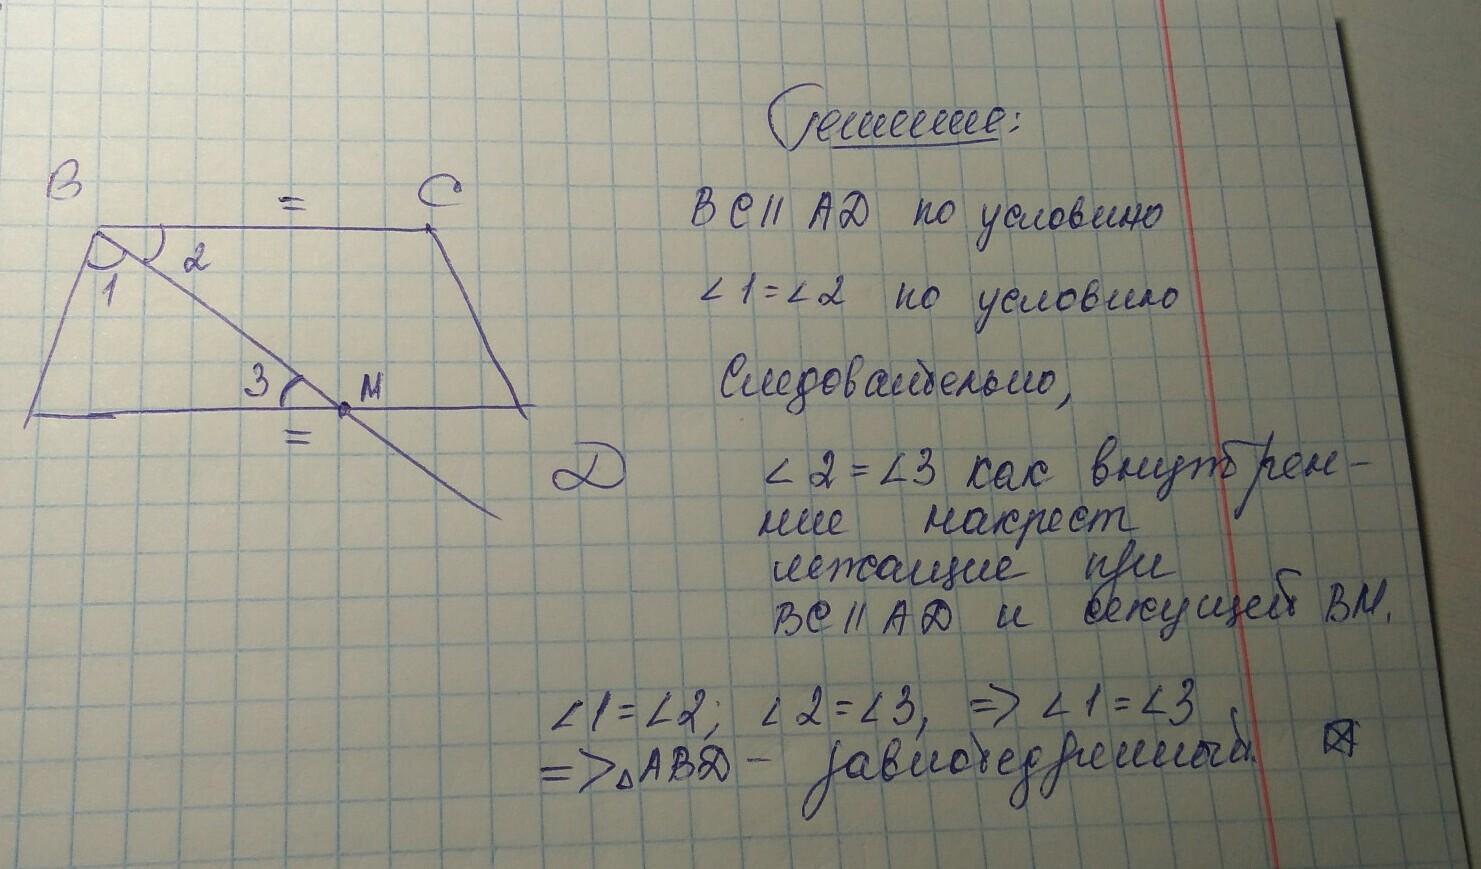 Решение:
B = C
BC || AD по условию
2
1
∠1=∠2 по условию
3 M
Следовательно,
=
D
∠2=∠3 как внутрен-
ние накрест
лежащие при
BC || AD и секущей BM.
∠1=∠2; ∠2=∠3, => ∠1=∠3
=> △ABD – равнобедренный